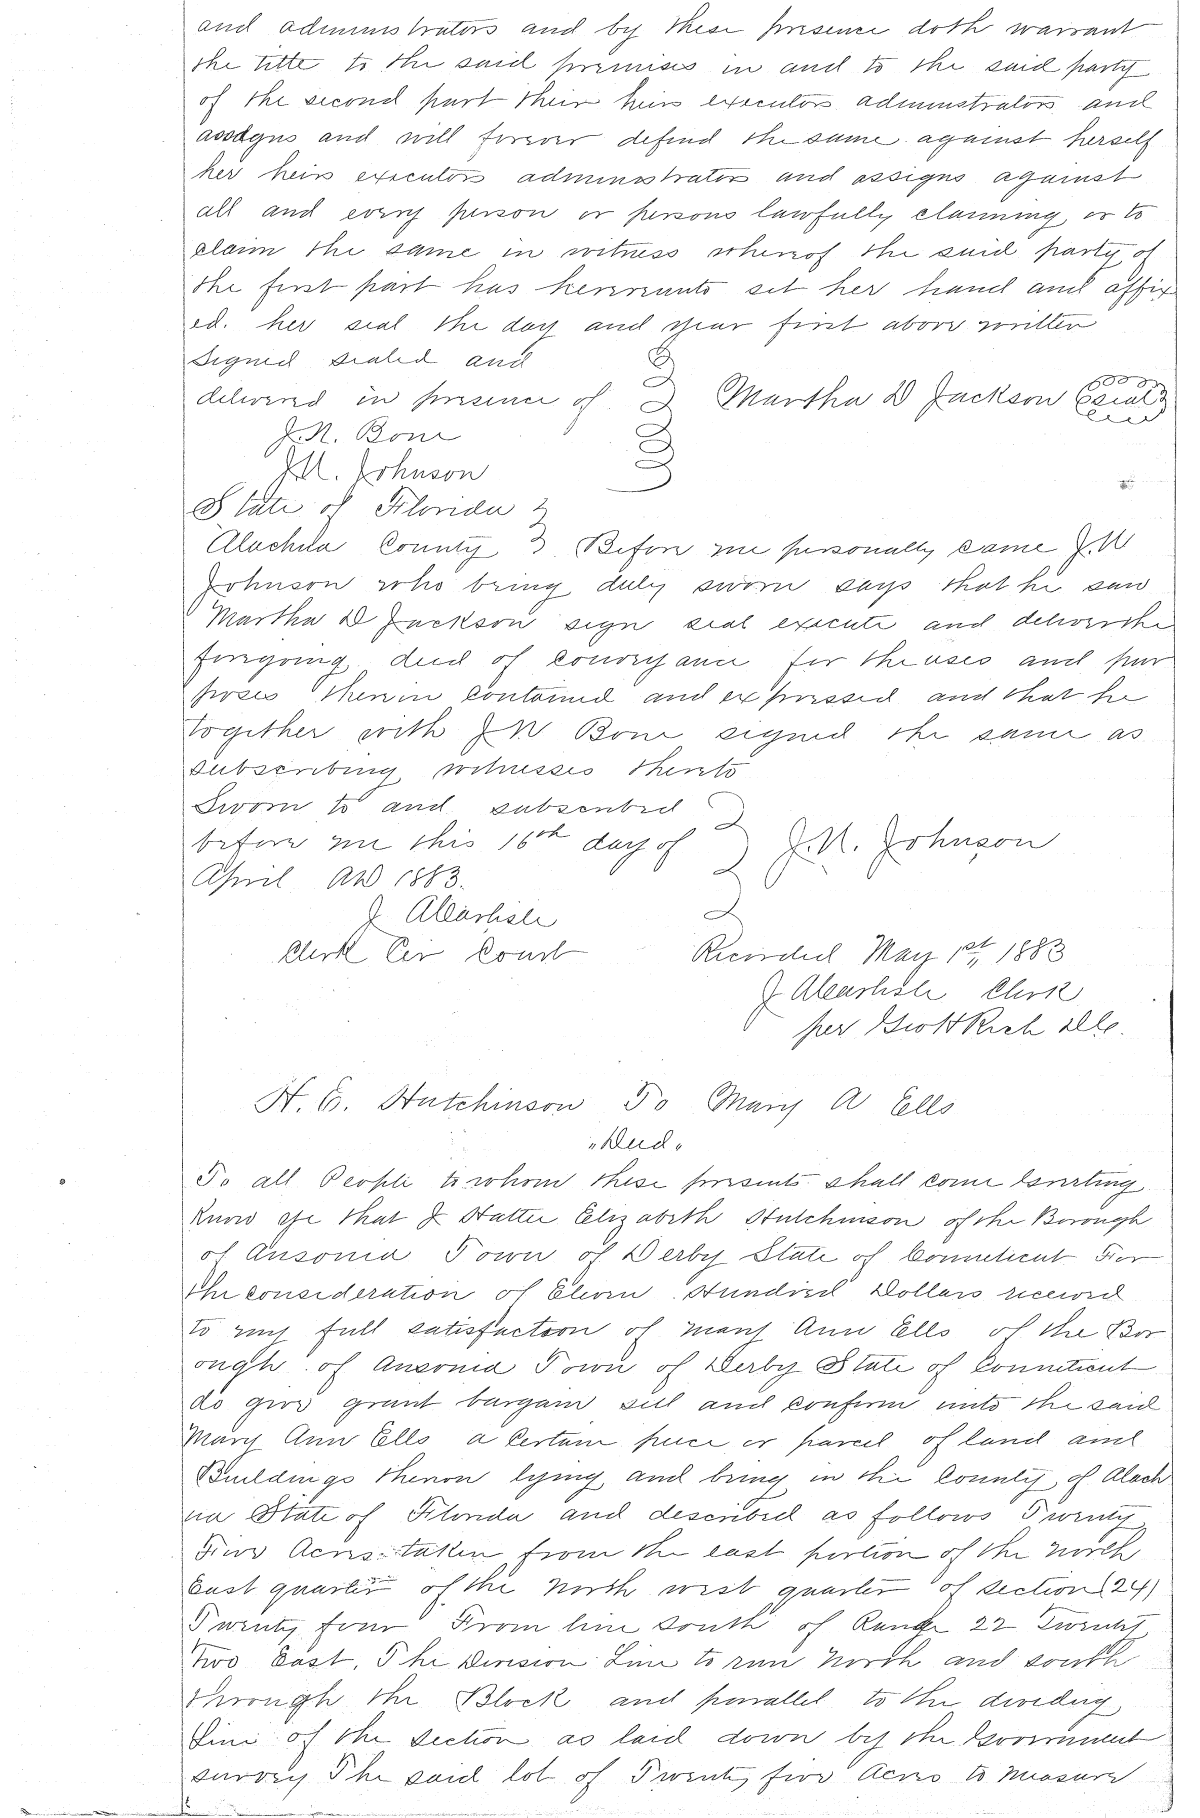 and administrators and by these presence doth warrant
the title to the said premises in and to the said party
of the second part their heirs executors administrators and
assigns and will forever defend the same against herself
her heirs executors administrators and assigns against
all and every person or persons lawfully claiming or to
claim the same in witness whereof the said party of
the first part has hereunto set her hand and affix
ed. her seal the day and year first above written
Signed sealed and
delivered in presence of Martha D Jackson Seal
J. N. Bone
J. N. Johnson
State of Florida
Alachua County Before me personally came J. N
Johnson who being duly sworn says that he saw
Martha D Jackson sign seal execute and deliver the
foregoing deed of conveyance for the uses and pur
poses therein contained and expressed and that he
together with J N Bone signed the same as
subscribing witnesses thereto
Sworn to and subscribed
before me this 16th day of J. N. Johnson
April AD 1883.
J A Carlisle
Clerk Cir Court Recorded May 1st, 1883
J A Carlisle Clerk
per Rich D.C.
H. E. Hutchinson To Mary A Ells
"Deed"
To all People to whom these presents shall come Greeting
Know ye that I Hattie Elizabeth Hutchinson of the Borough
of Ansonia Town of Derby State of Conneticut For
the consideration of Eleven Hundred Dollars received
to my full satisfaction of Mary Ann Ells of the Bor
ough of Ansonia Town of Derby State of Conneticut
do give grant bargain sell and confirm unto the said
Mary Ann Ells a Certain piece or parcel of land and
Buildings thereon lying and being in the County of Alach
ua State of Florida and described as follows Twenty
Five Acres taken from the east portion of the North
East quarter of the North west quarter of section (24)
Twenty four From line South of Range 22 Twenty
Two East. The Division Line to run North and south
through the Block and parallel to the dividing
Line of the Section as laid down by the Government
survey The said lot of Twenty five Acres to measure